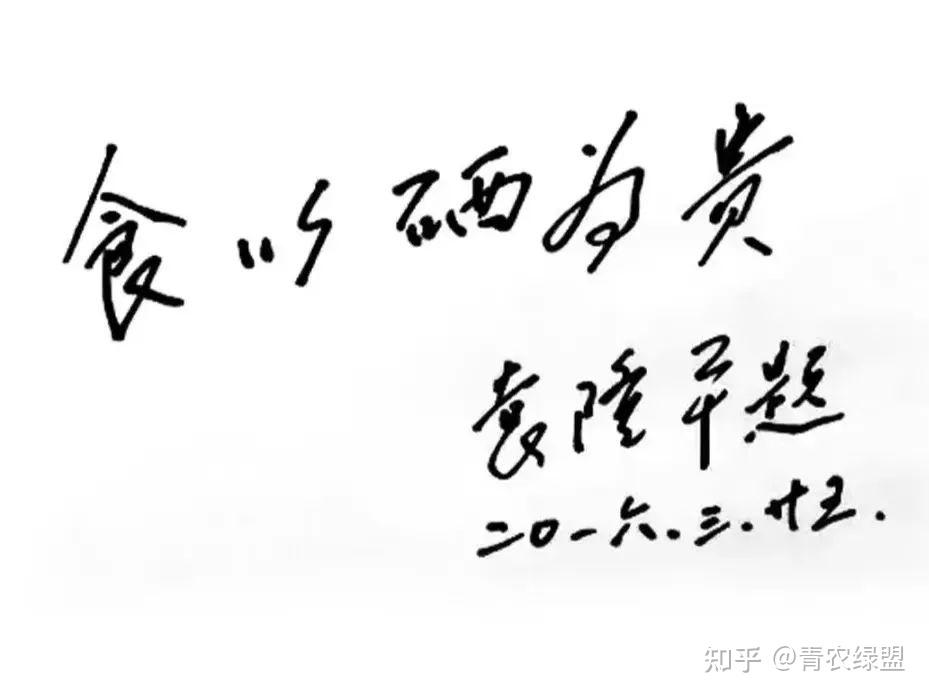 食以硒为贵
袁隆平题
二〇一六.三.廿五.
知乎 @青农绿盟